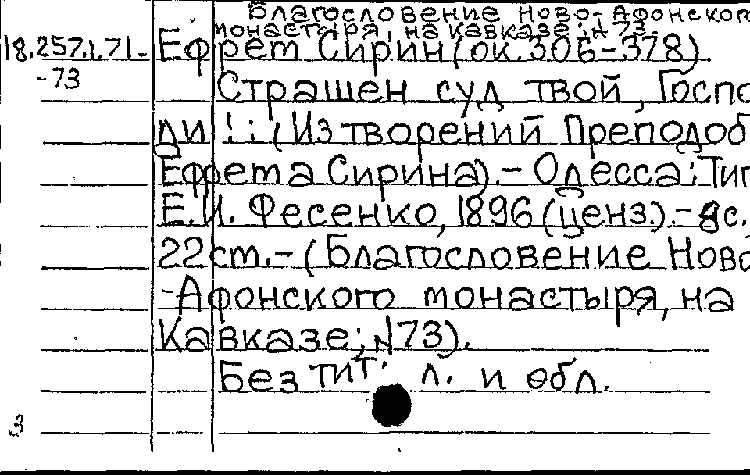 Благословение Ново-Афонског
монастыря, на кавказе; №73
18.257.1.71- Ефрем Сирин (ок. 306-378)
-73 Страшен суд твой, Госпо
ди!: (Из творений Преподоб
Ефрема Сирина).- Одесса: Тип
Е.И. Фесенко, 1896 (ценз.).- 8с.
22см.-(Благословение Ново
-Афонского монастыря, на
Кавказе; №73).
Без тит. л. и обл.
3